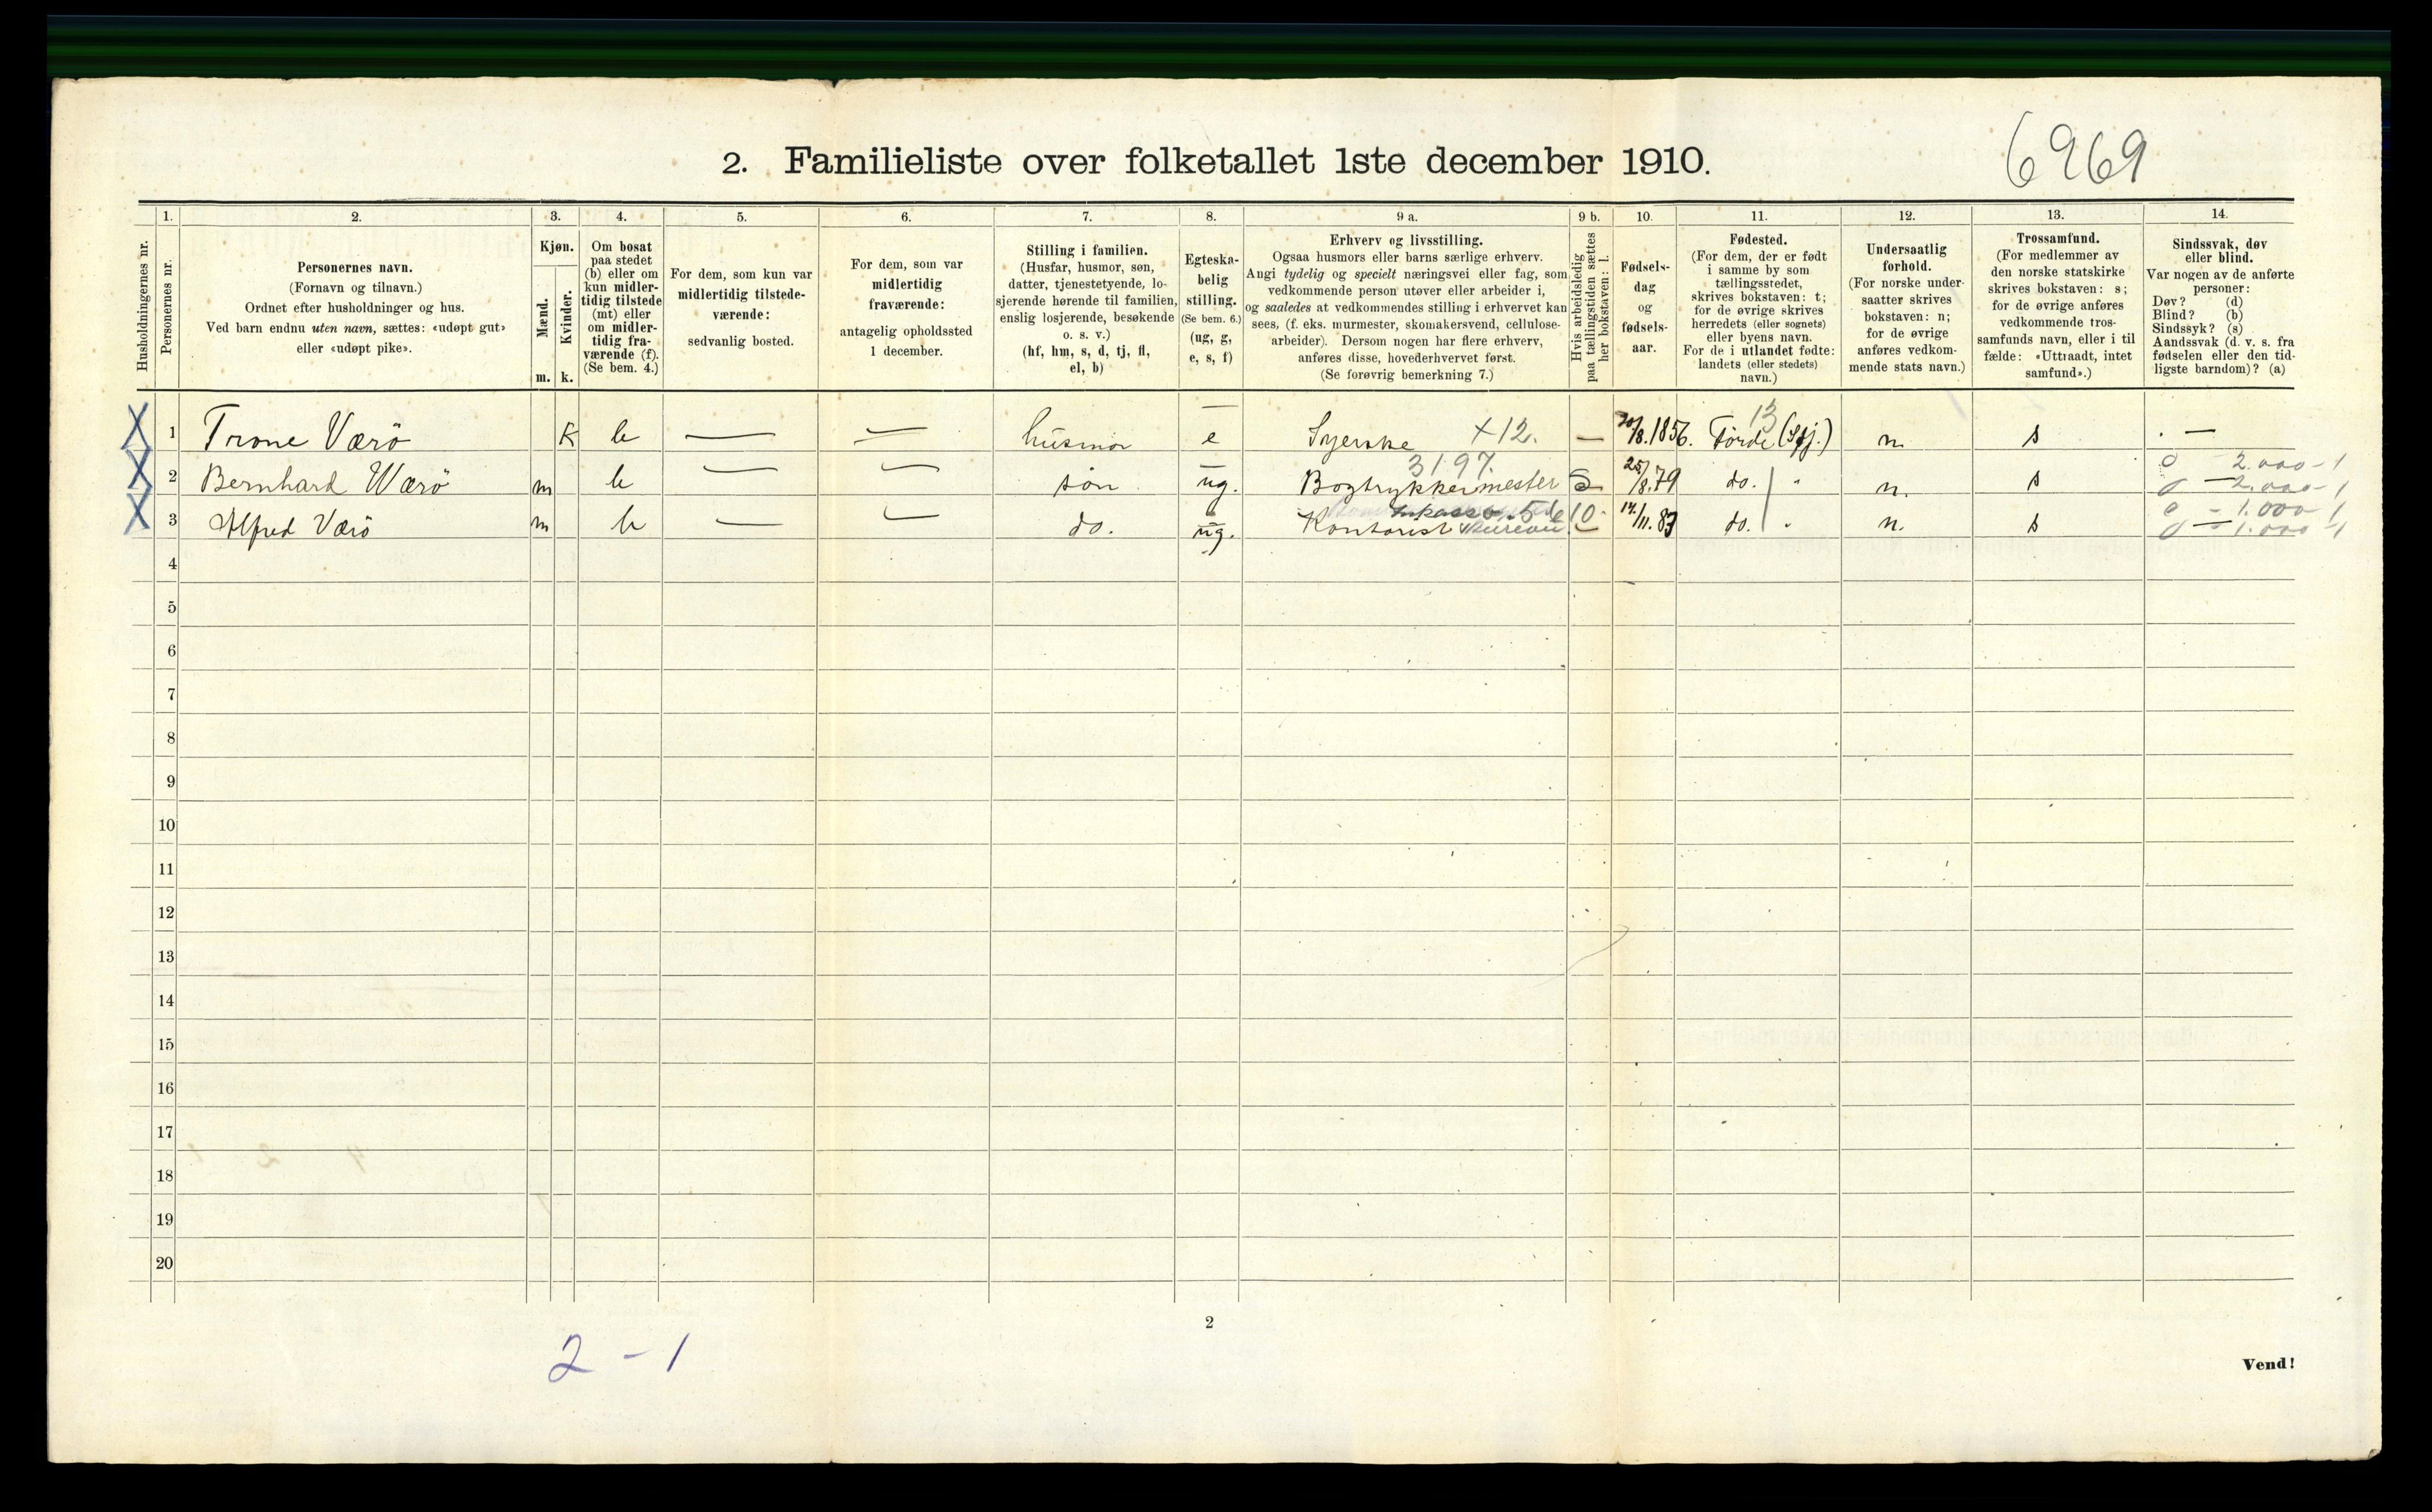 6969
2. Familieliste over folketallet 1ste december 1910.
1. 2. 3. 4. 5. 6. 7. 8. 9 a. 9 b. 10. 11. 12. 13. 14.
Husholdningernes nr.
Personernes nr.
Personernes navn.
(Fornavn og tilnavn.)
Ordnet efter husholdninger og hus.
Ved barn endnu uten navn, sættes: «udøpt gut»
eller «udøpt pike».
Kjøn.
Mænd.
m.
Kvinder.
k.
Om bosat
paa stedet
(b) eller om
kun midler-
tidig tilstede
(mt) eller
om midler-
tidig fra-
værende (f).
(Se bem. 4.)
For dem, som kun var
midlertidig tilstede-
værende:
sedvanlig bosted.
For dem, som var
midlertidig
fraværende:
antagelig opholdssted
1 december.
Stilling i familien.
(Husfar, husmor, søn,
datter, tjenestetyende, lo-
sjerende hørende til familien,
enslig losjerende, besøkende
o. s. v.)
(hf, hm, s, d, tj, fl,
el, b)
Egteska-
belig
stilling.
(Se bem. 6.)
(ug, g,
e, s, f)
Erhverv og livsstilling.
Ogsaa husmors eller barns særlige erhverv.
Angi tydelig og specielt næringsvei eller fag, som
vedkommende person utøver eller arbeider i,
og saaledes at vedkommendes stilling i erhvervet kan
sees, (f. eks. murmester, skomakersvend, cellulose-
arbeider). Dersom nogen har flere erhverv,
anføres disse, hovederhvervet først.
(Se forøvrig bemerkning 7.)
Hvis arbeidsledig
paa tællingstiden sættes
her bokstaven: l.
Fødsels-
dag
og
fødsels-
aar.
Fødested.
(For dem, der er født
i samme by som
tællingsstedet,
skrives bokstaven: t;
for de øvrige skrives
herredets (eller sognets)
eller byens navn.
For de i utlandet fødte:
landets (eller stedets)
navn.)
Undersaatlig
forhold.
(For norske under-
saatter skrives
bokstaven: n;
for de øvrige
anføres vedkom-
mende stats navn.)
Trossamfund.
(For medlemmer av
den norske statskirke
skrives bokstaven: s;
for de øvrige anføres
vedkommende tros-
samfunds navn, eller i til
fælde: «Uttraadt, intet
samfund».)
Sindssvak, døv
eller blind.
Var nogen av de anførte
personer:
Døv? (d)
Blind? (b)
Sindssyk? (s)
Aandssvak (d. v. s. fra
fødselen eller den tid-
ligste barndom)? (a)
X 1 Trone Værö K b — — husmor e Syerske X12. — 20/8.1856. Førde (Sfj.) 13 n. s —
X 2 Bernhard Wærö m b — — søn ug. Bogtrykkermester 3197. 25/8.79 do. " n. s 0 - 2.000-1
0 - 2.000-1
X 3 Alfred Værö m b — — do. ug. Kontorist 14/11.83 do. " n. s 0 - 1.000-1
0 - 1.000-1
4
5
6
7
8
9
10
11
12
13
14
15
16
17
18
19
20
2
2 - 1
Vend!